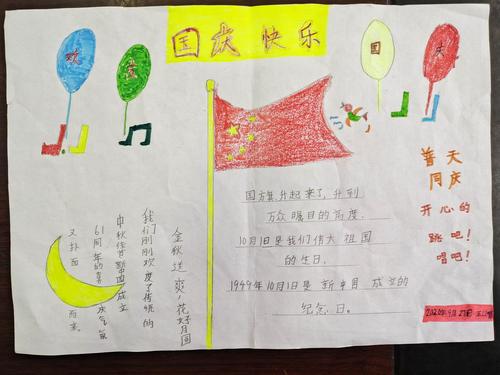 国庆快乐
欢
度
国
庆
普天
同庆
开心的
跳吧!
唱吧!
国旗升起来了,升到
万众瞩目的高度.
10月1日是我们伟大祖国
的生日.
1949年10月1日是新中国成立的
纪念日。
金秋送爽,花好月圆
我们刚刚欢度了传统的
中秋佳节
61周年的喜庆气氛
又扑面而来。